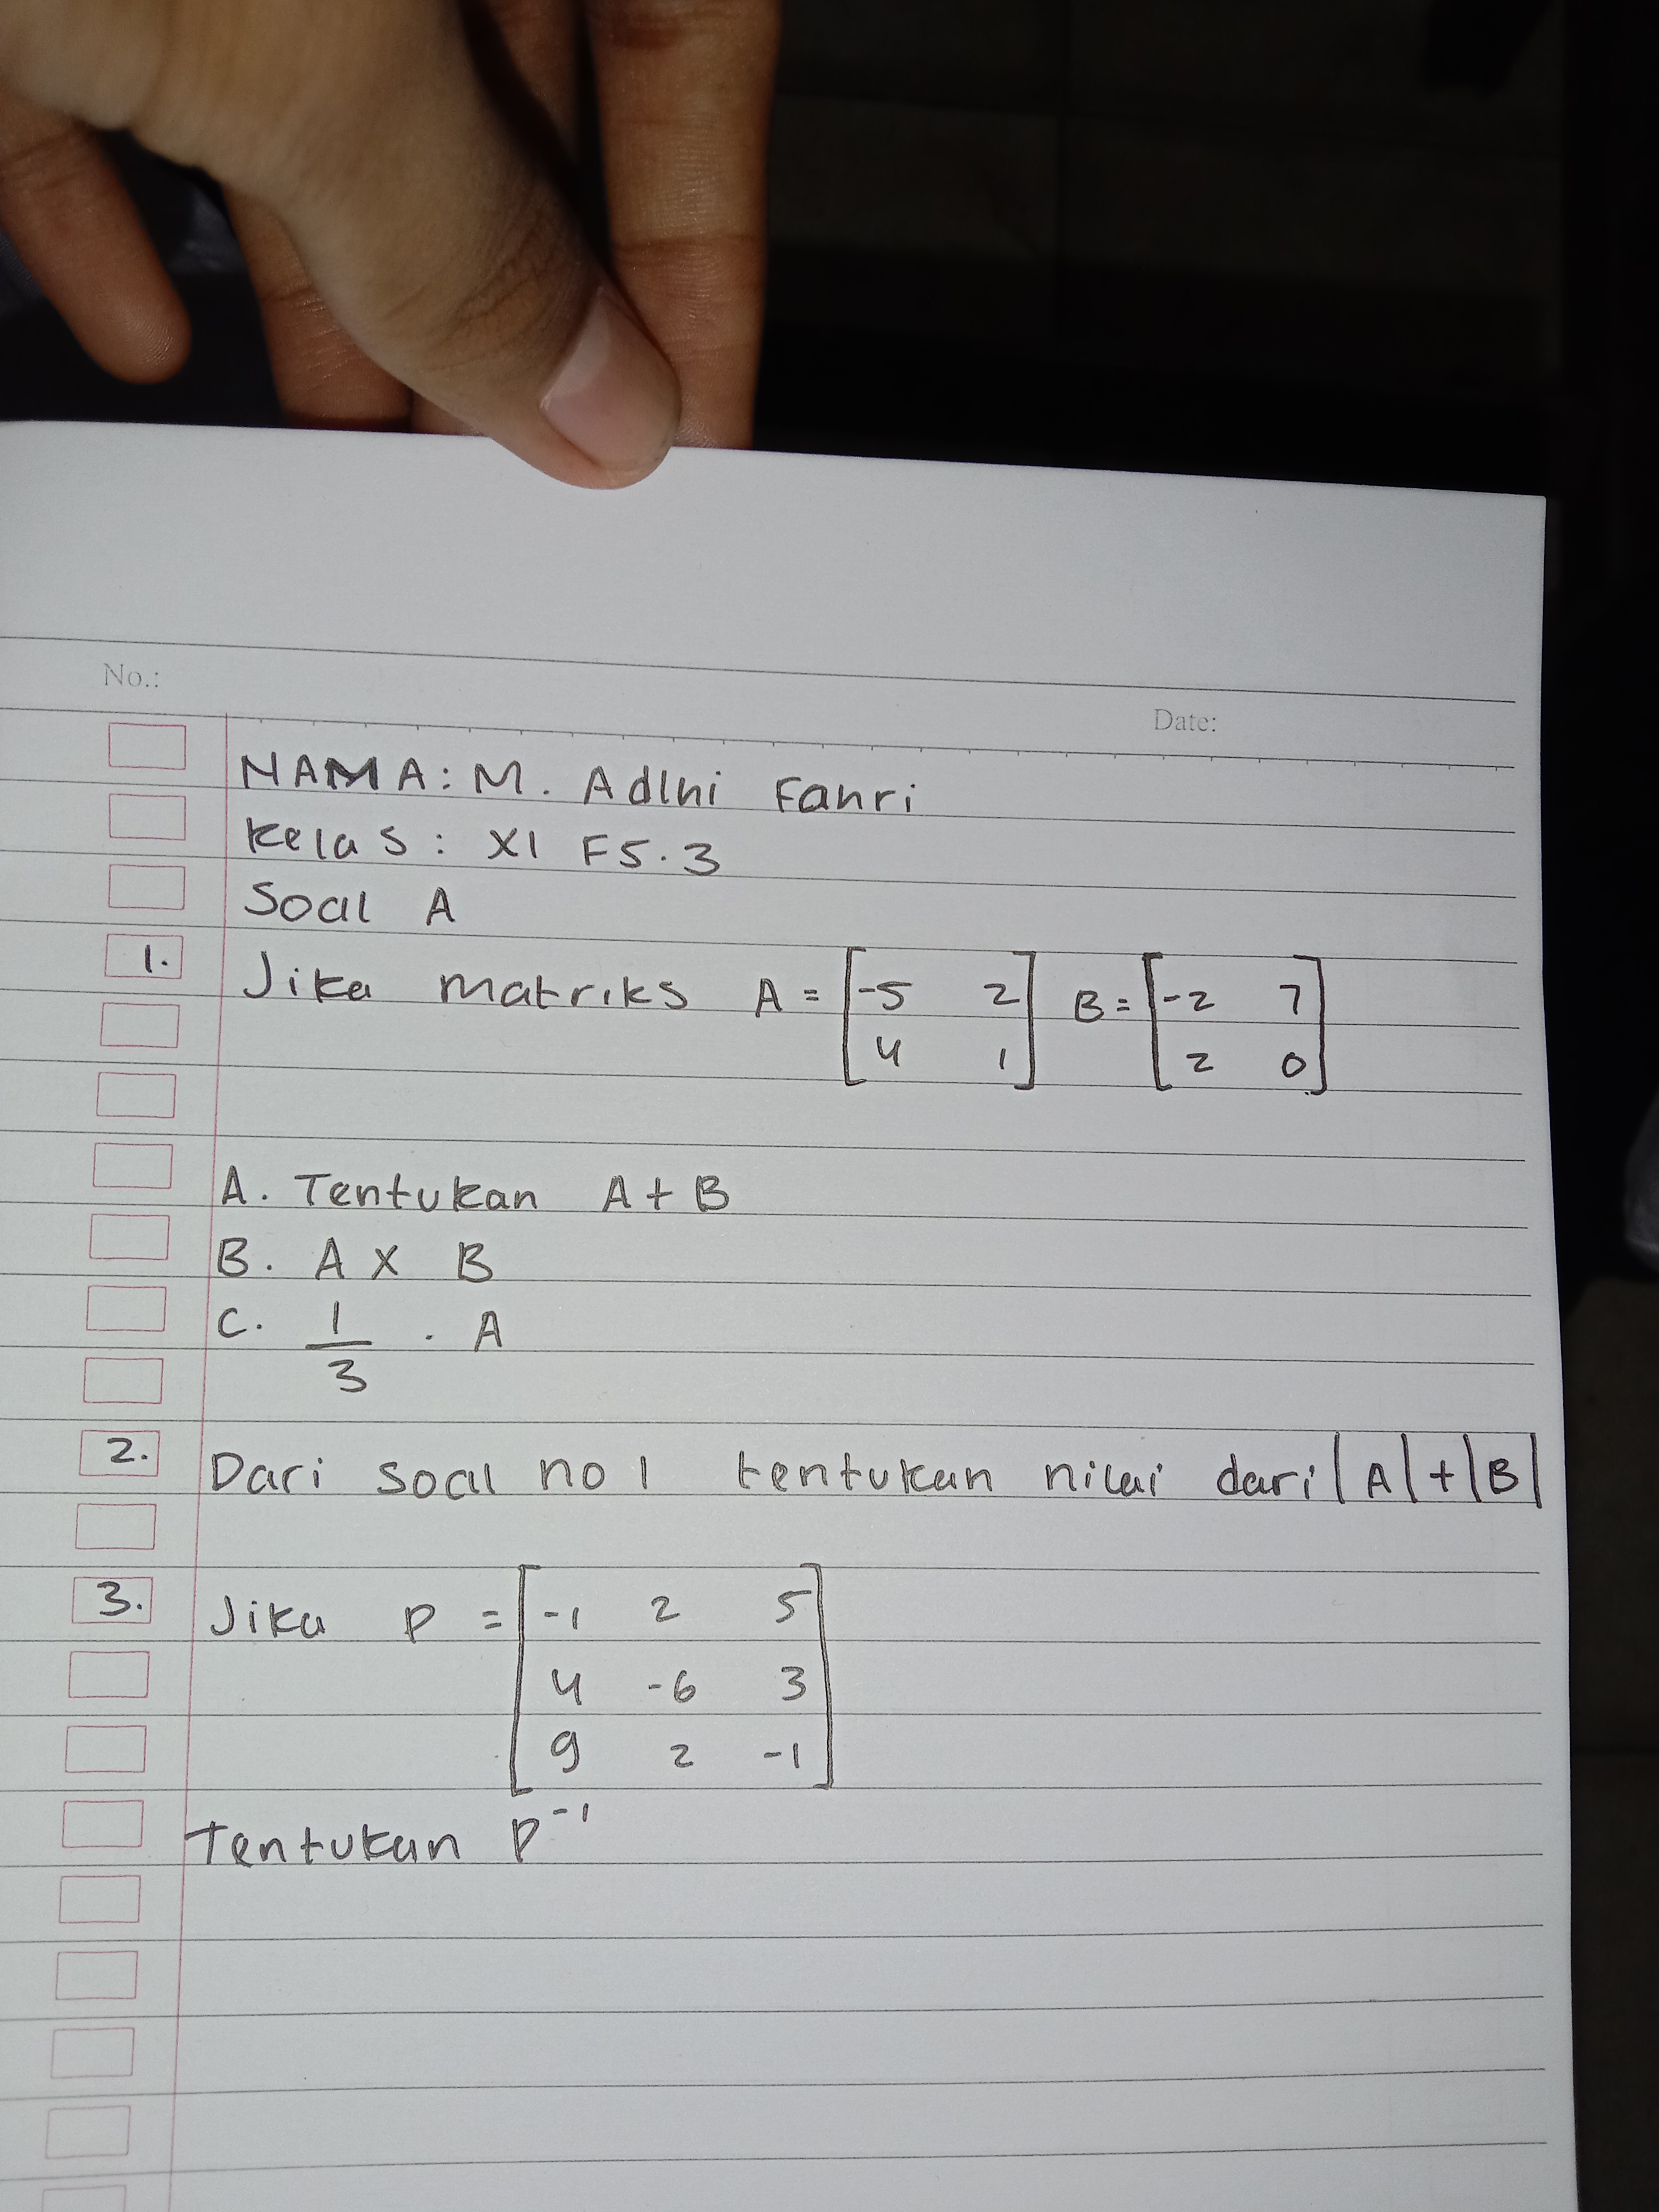 No.:
Date:
NAMA: M. Adlni Fanri
Kelas: XI F5.3
Soal A
1. Jika matriks A = [-5 2] B = [-2 7]
[4 1] [2 0]
A. Tentukan A + B
B. A x B
C. 1/3 . A
2. Dari soal no 1 tentukan nilai dari |A| + |B|
3. Jika P = [-1 2 5]
[4 -6 3]
[9 2 -1]
Tentukan P⁻¹